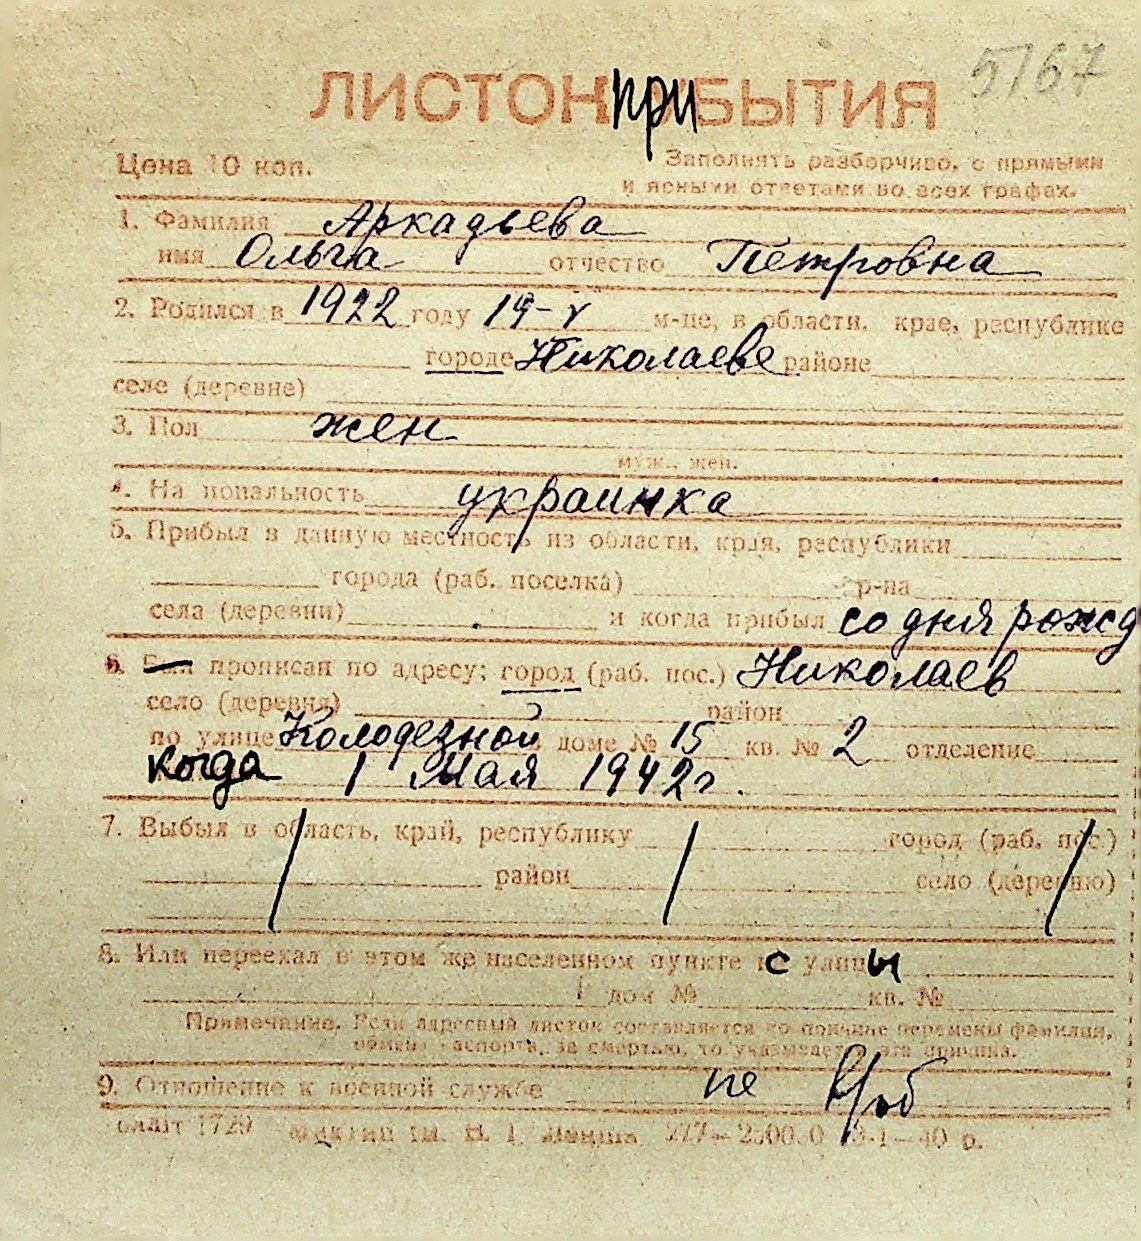 5167
ЛИСТОК ПРИБЫТИЯ
Цена 10 коп.
Заполнять разборчиво, с прямыми
и ясными ответами во всех графах.
1. Фамилия Аркадьева
имя Ольга отчество Петровна
2. Родился в 1922 году 19-V м-це, в области, крае, республике
городе Николаеве районе
селе (деревне)
3. Пол жен
муж., жен.
4. Национальность украинка
5. Прибыл в данную местность из области, края, республики
города (раб. поселка) р-на
села (деревни) и когда прибыл со дня рожд
6. Был прописан по адресу; город (раб. пос.) Николаев
село (деревня) район
по улице Колодезной доме № 15 кв. № 2 отделение
когда 1 Мая 1942г.
7. Выбыл в область, край, республику город (раб. пос.)
район село (деревню)
8. Или переехал в этом же населенном пункте с улицы
дом № кв. №
Примечание. Если адресный листок составляется по причине перемены фамилии,
обмена паспорта, за смертью, то указывается эта причина.
9. Отношение к военной службе не в/об
1729 им. 40 р.